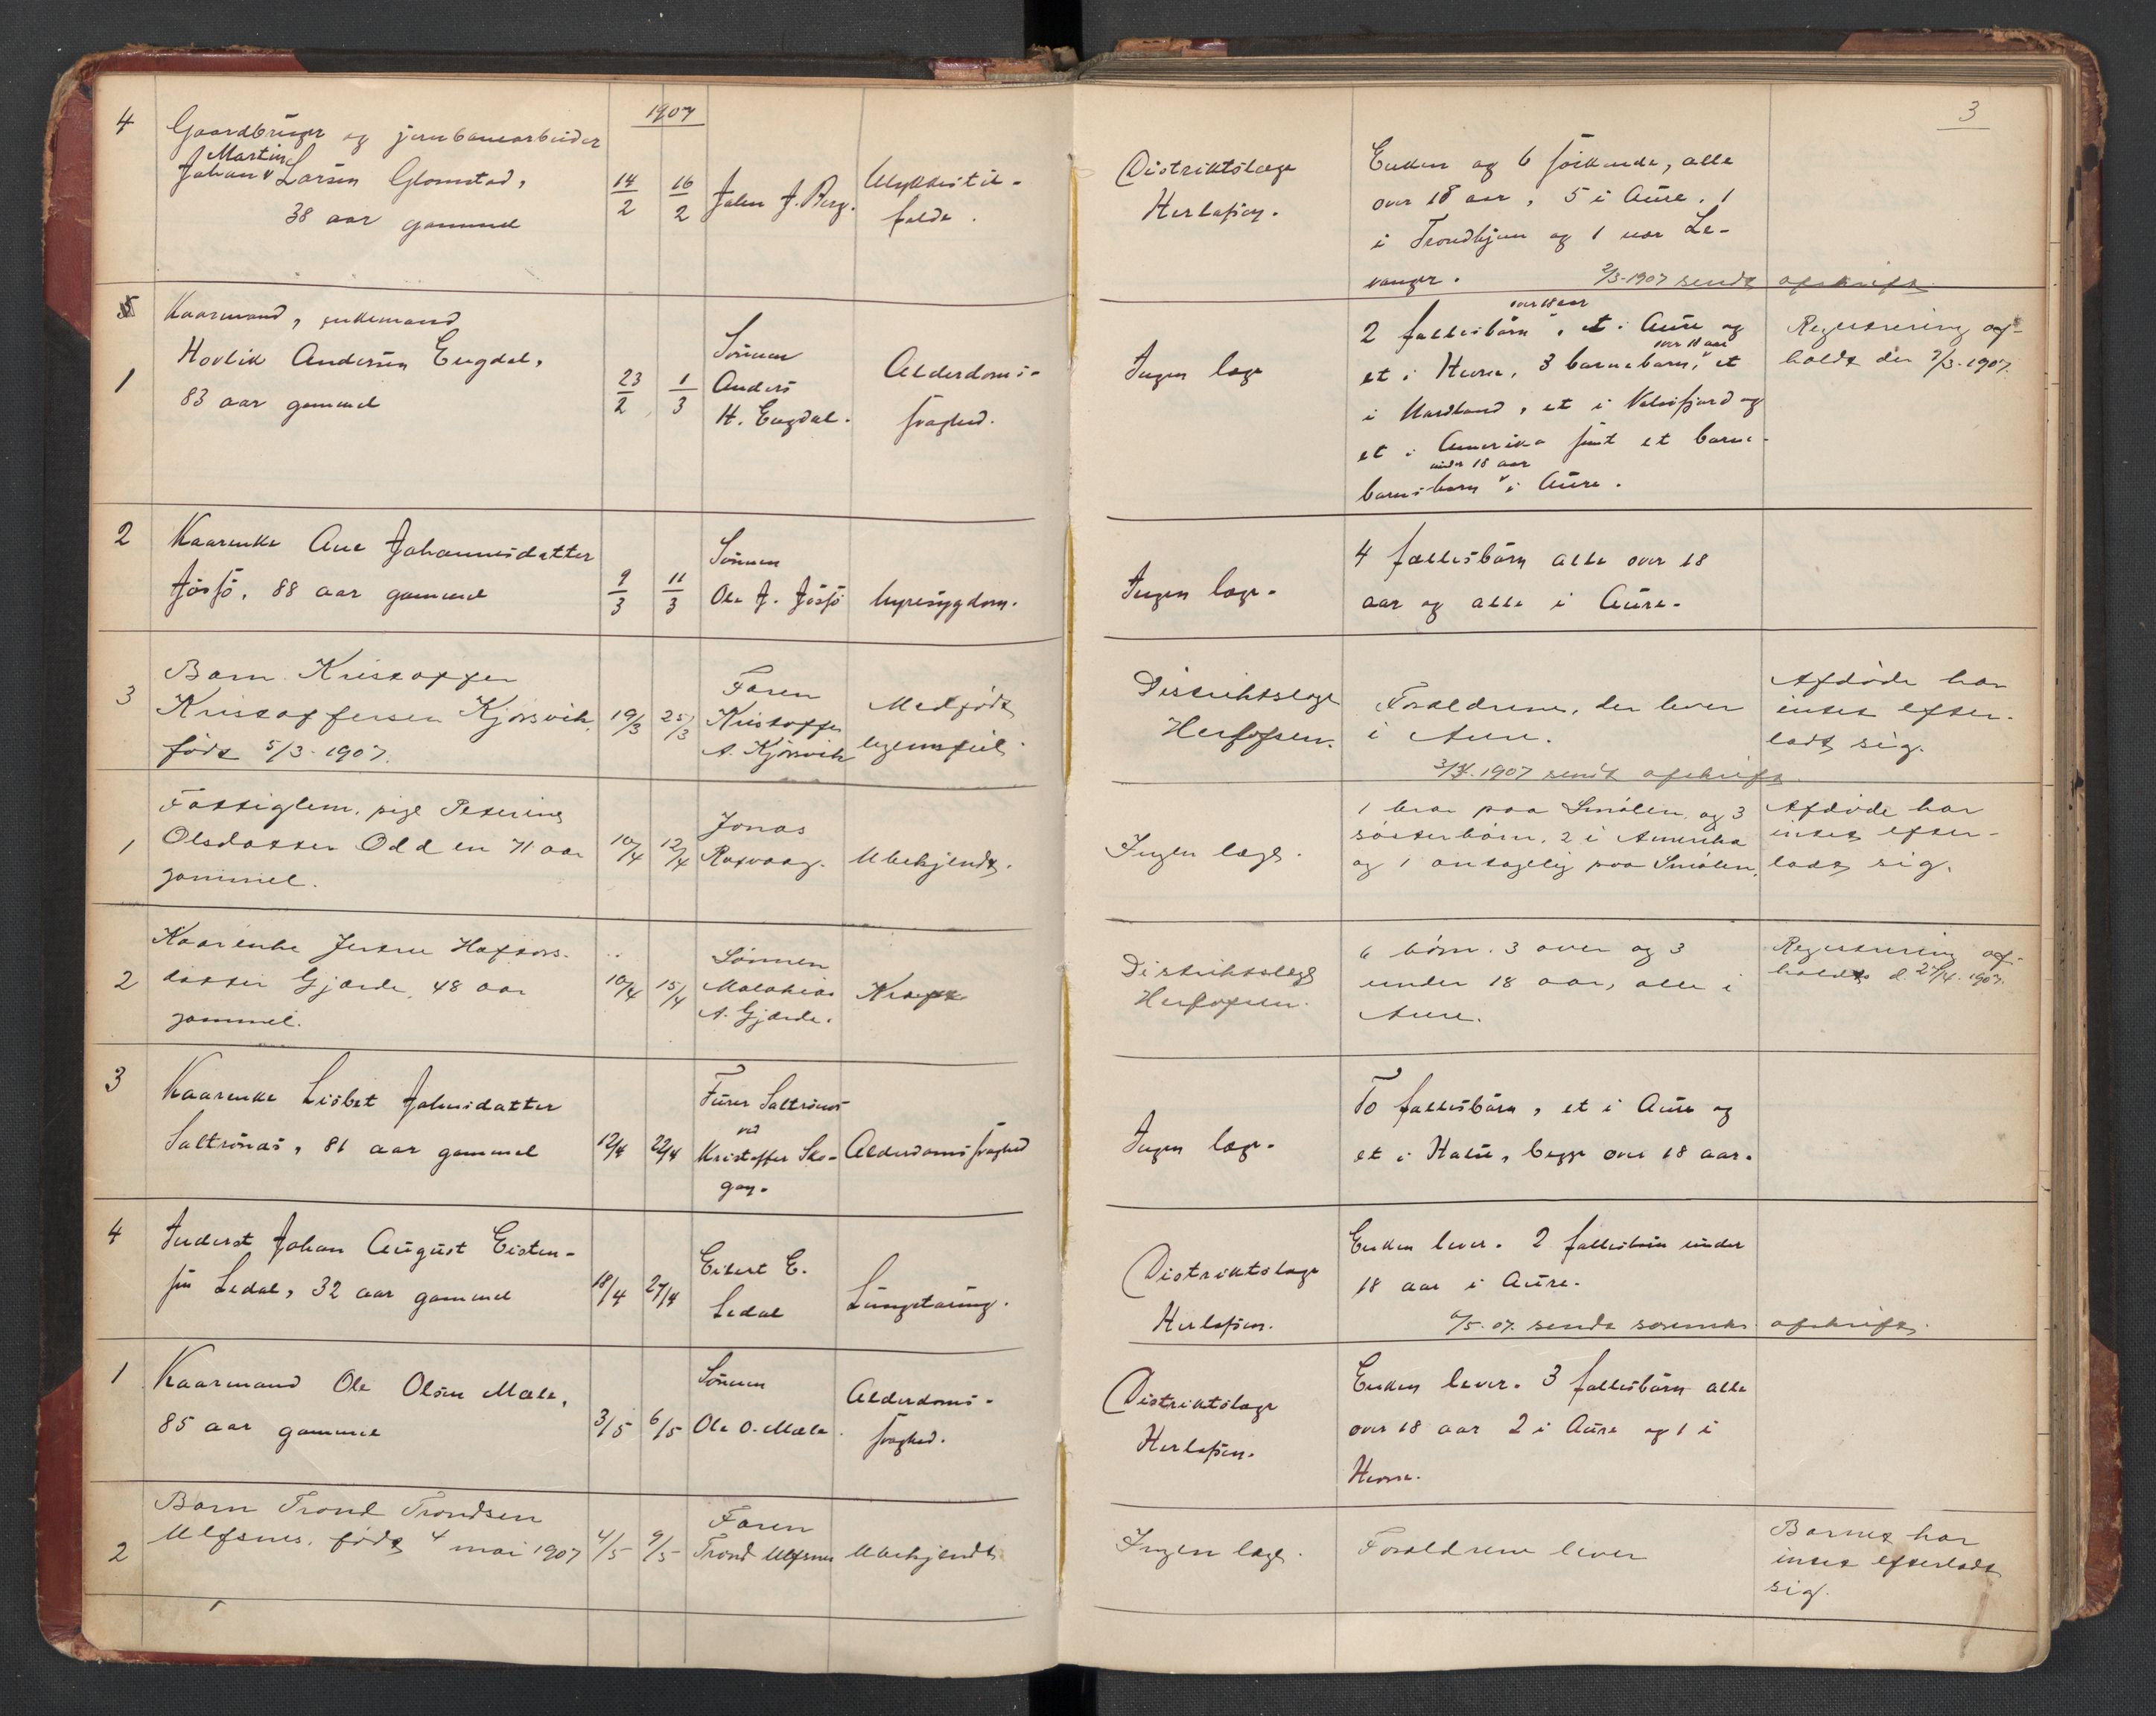 1907
3
4
Gaardbruger og jernbanearbeider
Johan Martin Larsen Glomstad,
38 aar gammel
14/2
16/2
John J. Berg.
Ulykkestil-
fælde.
Distriktslæge
Herlofsen.
Enken og 6 søskende, alle
over 18 aar, 5 i Aure, 1
i Trondhjem og 1 nær Le-
vanger.
2/3-1907 sendt afskrift
5
1
Kaarmand, enkemand
Hovlik Andersen Engdal,
83 aar gammel
23/2
1/3
Sønnen
Anders
H. Engdal.
Alderdoms-
svaghed.
Ingen læge
2 fællesbørn over 18 aar, et i Aure og
et i Hevne, 3 barnebarn, over 18 aar et
i Nordland, et i Velsfjord og
et i Amerika samt et barne-
barnsbarn under 18 aar i Aure.
Registrering af-
holdt den 7/3-1907.
2
Kaarenke Ane Johannesdatter
Jøssø, 88 aar gammel
9/3
11/3
Sønnen
Ole J. Jøssø
Nyresygdom.
Ingen læge.
4 fællesbørn alle over 18
aar og alle i Aure.
3
Barn Kristoffer
Kristoffersen Kjørsvik,
født 5/3-1907.
19/3
25/3
Faren
Kristoffer
A. Kjørsvik
Medfødt
legemsfeil.
Distriktslæge
Herlofsen.
Forældrene, der lever
i Aure.
3/4-1907 sendt afskrift.
Afdøde har
intet efter-
ladt sig.
1
Fattiglem, pige Peterine
Olsdatter Odden 71 aar
gammel.
10/4
12/4
Jonas
Roksvaag.
Ubekjendt.
Ingen læge.
1 bror paa Smølen, og 3
søsterbørn, 2 i Amerika
og 1 antagelig paa Smølen.
Afdøde har
intet efter-
ladt sig.
2
Kaarenke Jertru Haftors-
datter Gjærde, 48 aar
gammel.
10/4
15/4
Sønnen
Malakias
A. Gjærde.
Kræft
Distriktslæge
Herlofsen.
6 børn. 3 over og 3
under 18 aar, alle i
Aure.
Registrering af-
holdt d. 27/4. 1907.
3
Kaarenke Lisbet Johnsdatter
Saltrønas, 81 aar gammel
12/4
22/4
Furer Saltrønas
ved
Kristoffer Sko-
gan.
Alderdomssvaghed
Ingen læge.
To fællesbørn, et i Aure og
et i Halse, begge over 18 aar.
4
Inderst Johan August Eisten-
sen Ledal, 32 aar gammel
18/4
27/4
Eilert E.
Ledal
Lungetæring.
Distriktslæge
Herlofsen.
Enken lever. 2 fællesbørn under
18 aar i Aure.
6/5.07. sendt sorenskr. afskrift.
1
Kaarmand Ole Olsen Mæle,
85 aar gammel
3/5
6/5
Sønnen
Ole O. Mæle.
Alderdoms-
svaghed.
Distriktslæge
Herlofsen.
Enken lever. 3 fællesbørn alle
over 18 aar 2 i Aure og 1 i
Hevne.
2
Barn Trond Trondsen
Ulfsnes, født 4 mai 1907
4/5
9/5
Faren
Trond Ulfsnes
Ubekjendt
Ingen læge.
Forældrene lever
Barnet har
intet efterladt
sig.